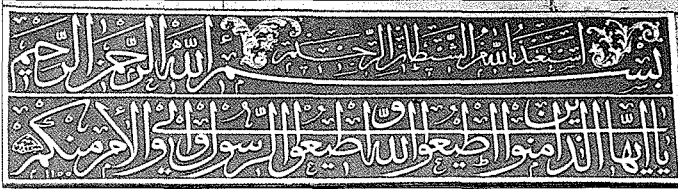 استعيذ بالله من الشيطان الرجيم
بسم الله الرحمن الرحيم
يا أيها الذين آمنوا أطيعوا الله وأطيعوا الرسول وأولي الأمر منكم